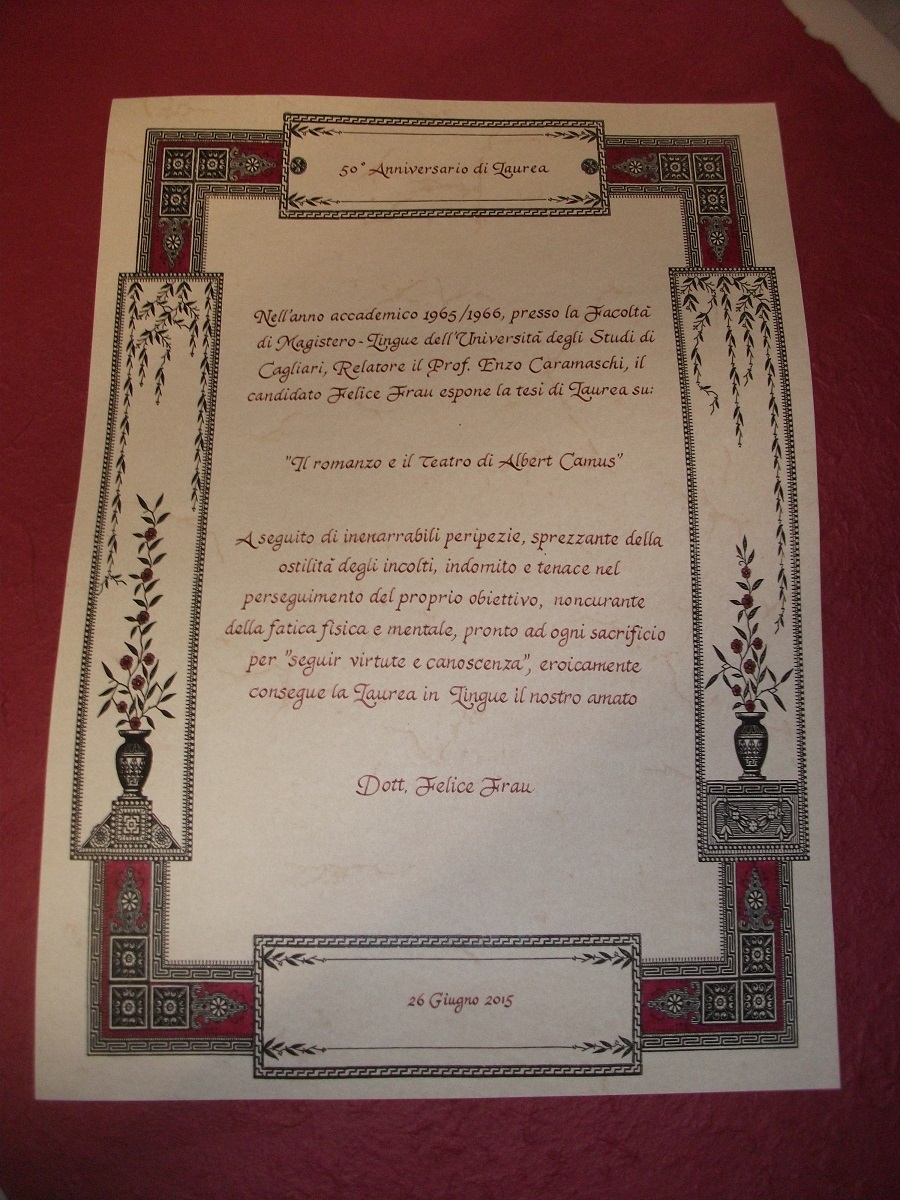 50° Anniversario di Laurea
Nell'anno accademico 1965/1966, presso la Facoltà
di Magistero-Lingue dell'Università degli Studi di
Cagliari, Relatore il Prof. Enzo Caramaschi, il
candidato Felice Frau espone la tesi di Laurea su:
"Il romanzo e il Teatro di Albert Camus"
A seguito di inenarrabili peripezie, sprezzante della
ostilità degli incolti, indomito e tenace nel
perseguimento del proprio obiettivo, noncurante
della fatica fisica e mentale, pronto ad ogni sacrificio
per "seguir virtute e canoscenza", eroicamente
consegue la Laurea in Lingue il nostro amato
Dott. Felice Frau
26 Giugno 2015